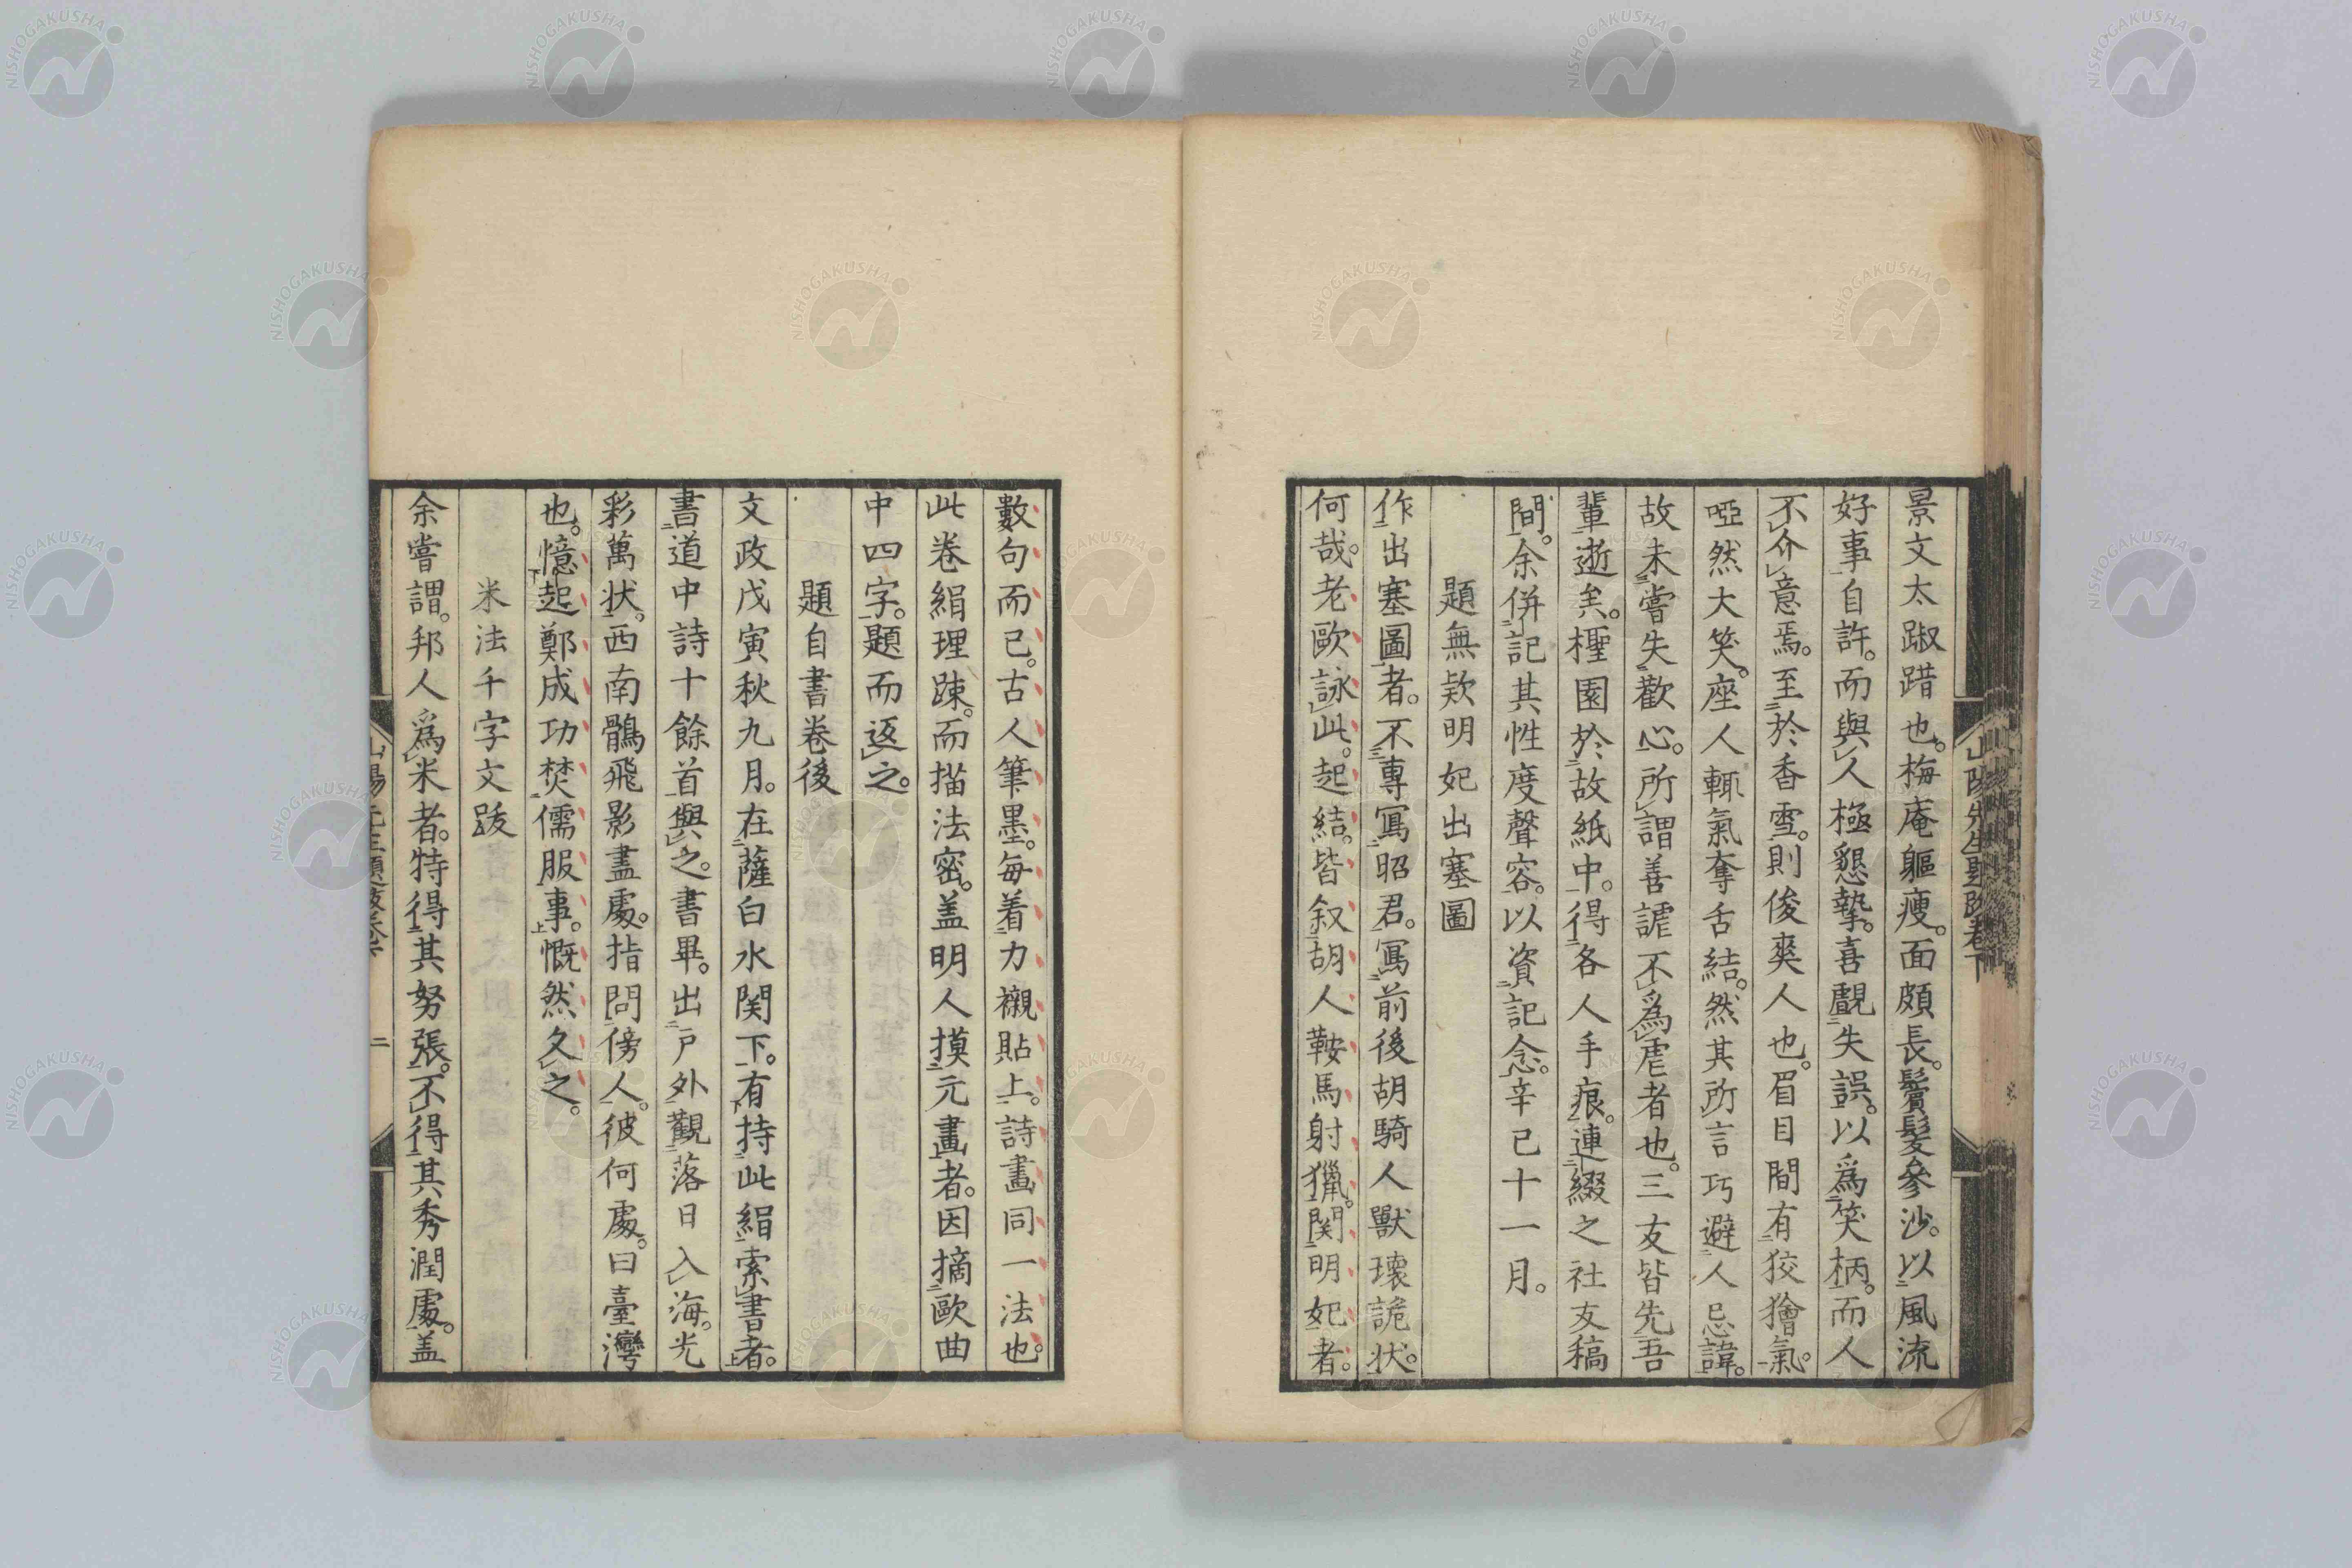 景文太踧踖也。梅庵軀瘦。面頗長。鬢髮參沙。以風流
好事自許。而與人極懇摯。喜覻失誤。以爲笑柄。而人
不介意焉。至於香雪。則俊爽人也。眉目間有狡獪氣。
啞然大笑。座人輒氣奪舌結。然其所言巧避人忌諱。
故未嘗失歡心。所謂善謔不爲虐者也。三友皆先吾
輩逝矣。檉園於故紙中。得各人手痕。連綴之社友稿
間。余併記其性度聲容。以資記念。辛已十一月。
題無欵明妃出塞圖
作出塞圖者。不專寫昭君。寫前後胡騎人獸壞詭狀。
何哉。老歐詠此。起結。皆叙胡人鞍馬射獵。関明妃者。
數句而已。古人筆墨。每着力襯貼上。詩畫同一法也。
此卷絹理踈。而描法密。盖明人摸元畫者。因摘歐曲
中四字。題而返之。
題自書卷後
文政戊寅秋九月。在薩白水関下。有持此絹索書者。
書道中詩十餘首與之。書畢。出戶外觀落日入海。光
彩萬状。西南鶻飛影盡處。指問傍人。彼何處。曰臺灣
也。憶起鄭成功焚儒服事。慨然久之。
米法千字文跋
余嘗謂。邦人爲米者。特得其努張。不得其秀潤處。盖
二
NISHOGAKUSHA